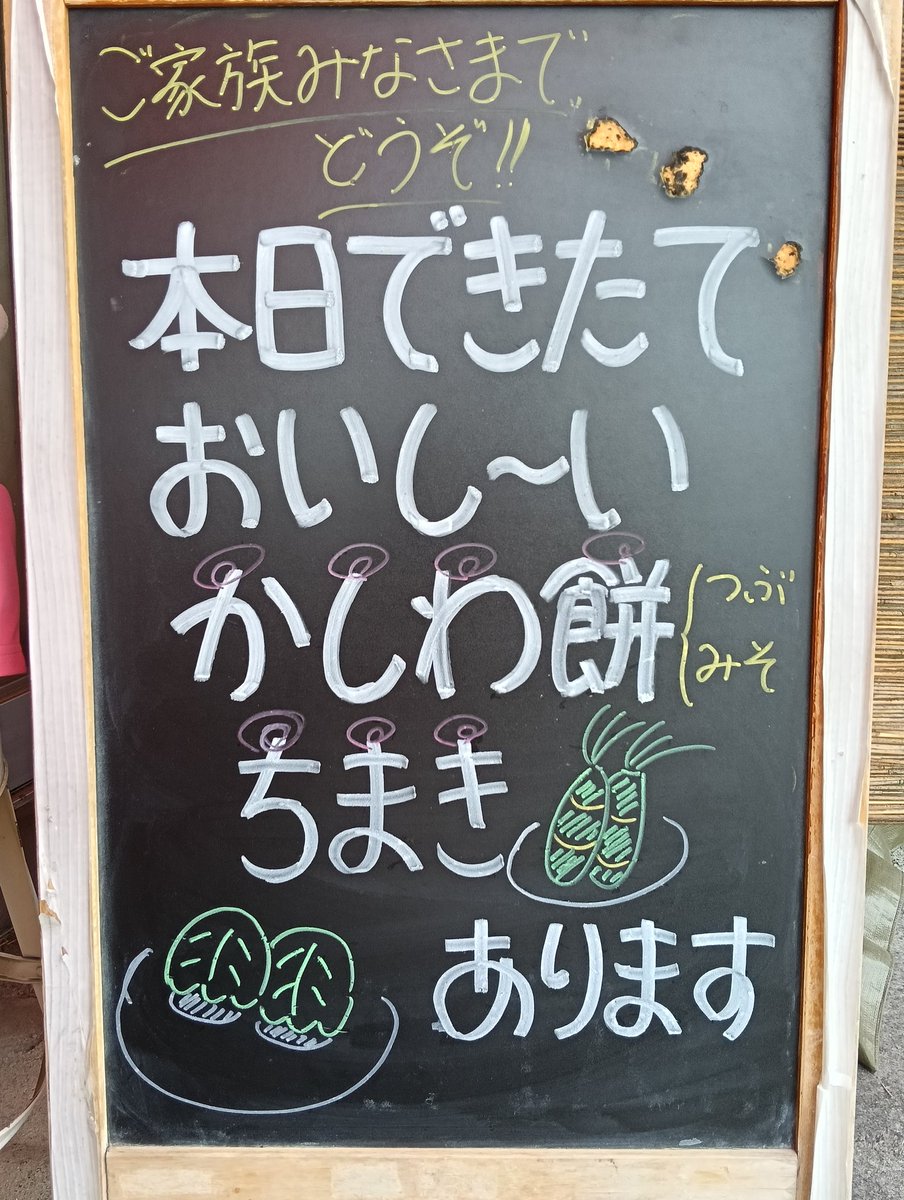 ご家族みなさまで
どうぞ!!
本日できたて
おいし〜い
かしわ餅
つぶ
みそ
ちまき
あります